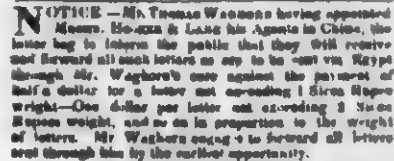 NOTICE —Mr. Thomas Waghorn having appointed
Messrs. & Lang his Agents in China, the
latter beg to inform the public that they will receive
and forward all such letters as are to be sent via Egypt
through Mr. Waghorn's care against the payment of
half a dollar for a letter not exceeding 1 Sicca Rupee
weight—One dollar per letter not exceeding 2 Sicca
Rupees weight, and so on in proportion to the weight
of letters. Mr Waghorn engages to forward all letters
sent through him by the earliest opportunity.